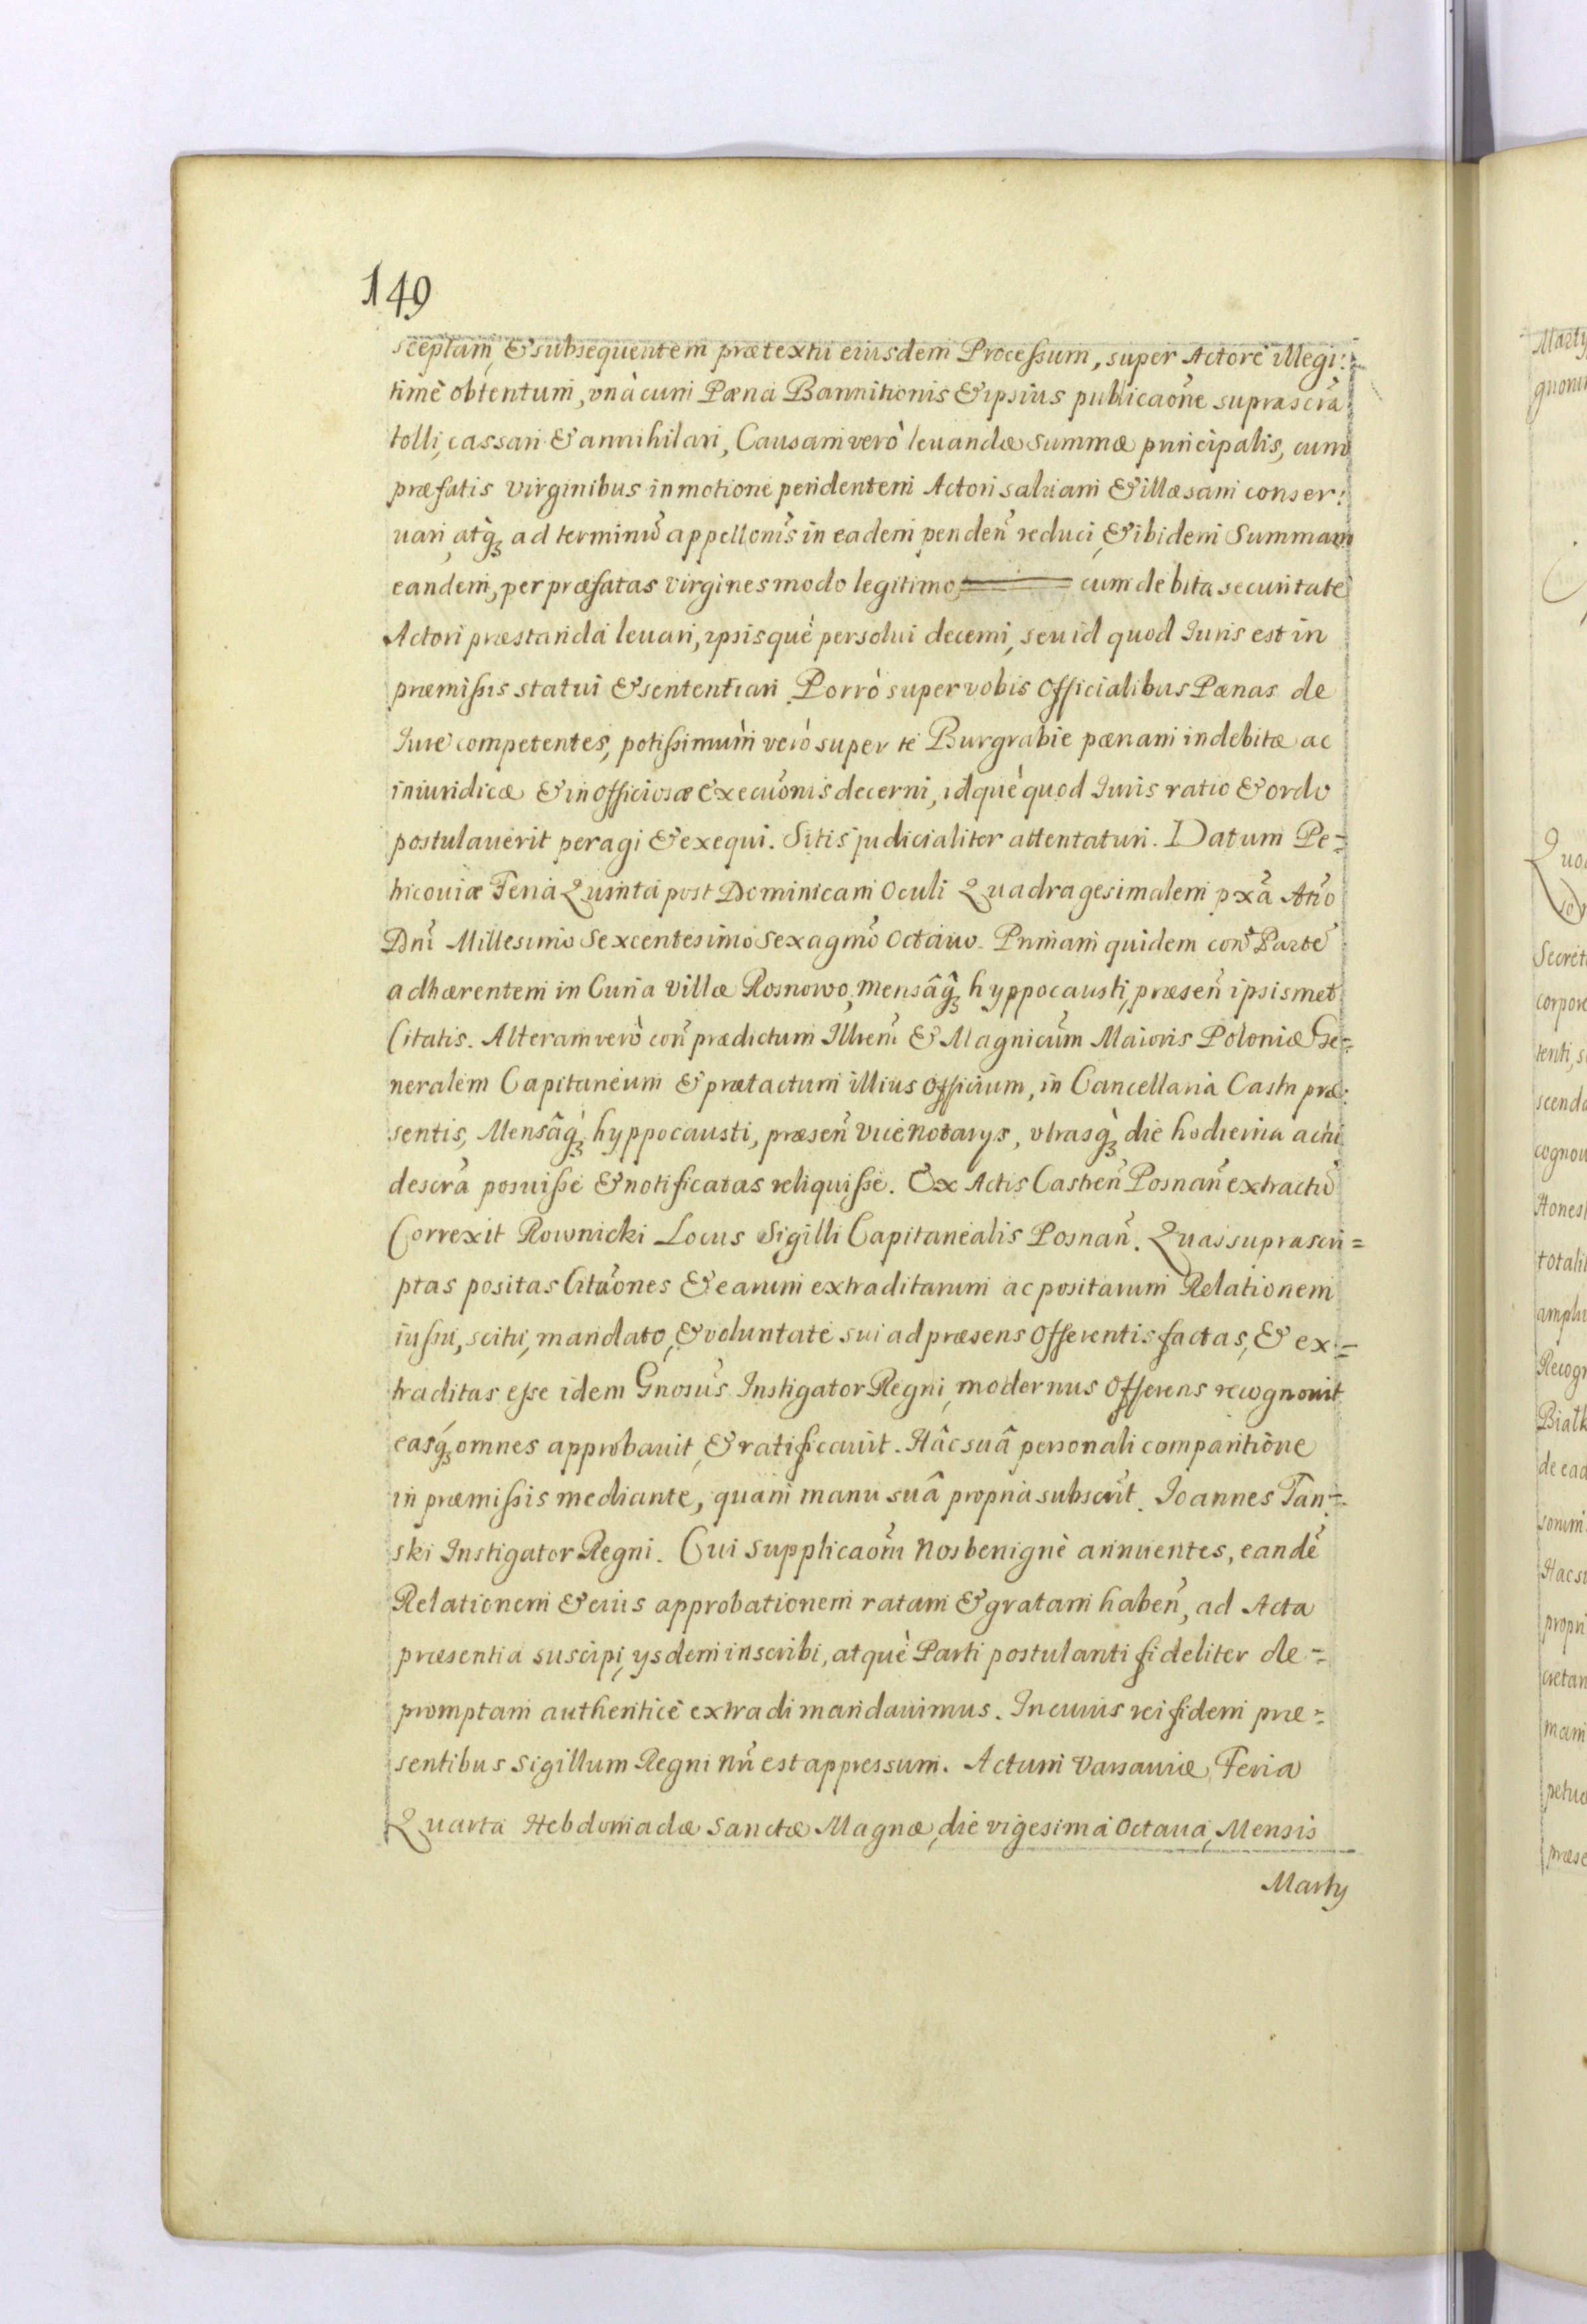 149
sceptam, & subsequentem prætextu eiusdem Processum, super Actore illegi:
timè obtentum, vnà cum Pæna Bannitionis & ipsius publicaõne suprascrã
tolli, cassari & annihilari, Causam verò leuandæ summæ principalis, cum
præfatis virginibus in motione pendentem Actori saluam & illæsam conser:
uari, atq̀ꝫ ad terminũ appellonĩs in eadem pendeñ reduci, & ibidem Summam
eandem, per præfatas virgines modo legitimo, ═══ cum debita securitate
Actori præstanda leuari, ipsisquè persolui decerni, seu id quod Iuris est in
præmißis statui & sententiari. Porrò super vobis Officialibus Pænas de
Iure competentes, potißimùm verò super te Burgrabie pænam indebitæ ac
iniuridicæ & inofficiosæ Execuõnis decerni, idquè quod Iuris ratio & ordo
postulauerit peragi & exequi. Sitis judicialiter attentaturi. Datum Pe=
tricouiæ Feria Quinta post Dominicam Oculi Quadragesimalem pxã Añõ
Dnĩ Millesimo Sexcentesimo Sexagmõ Octauo. Primam quidem coñ Partẽ
adhærentem in Curia villæ Rosnowo, mensâq̂ꝫ hyppocausti, præseñ ipsismet
Citatis. Alteram verò coñ prædictum Illrem̃ & Magnicũm Maioris Poloniæ Ge=
neralem Capitaneum & prætactum illius Officium, in Cancellaria Castri præ:
sentis, Mensâq̀ꝫ hyppocausti, præseñ vice Notarys, vtrasq̀ꝫ die hodierna actũ
descrã posuiße & notificatas reliquiße. Ex Actis Castreñ Posnañ extractũ
Correxit Rownicki Locus Sigilli Capitanealis Posnañ. Quas suprascri=
ptas positas Citaõnes & earum extraditarum ac positarum Relationem
iußu, scitu, mandato, & voluntate sui ad præsens Offerentis factas, & ex=
traditas eße idem Gnosũs Instigator Regni, modernus Offerens recognouit
easq́ꝫ omnes approbauit, & ratificauit. Hâc suâ personali comparitione
in præmißis mediante, quam manu suâ propria subscrĩt. Joannes Tan=
ski Instigator Regni. Cui Supplicaõni Nos benignè annuentes, eandẽ
Relationem & eius approbationem ratam & gratam habeñ, ad Acta
præsentia suscipi, ysdem inscribi, atquè Parti postulanti fideliter de=
promptam authenticè extradi mandauimus. In cuius rei fidem præ=
sentibus Sigillum Regni Nr̃i est appressum. Actum Varsauiæ Feria
Quarta Hebdomadæ Sanctæ Magnæ, die vigesima Octaua, Mensis
Marty